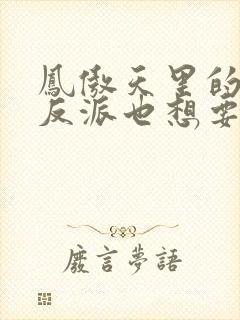 鳳傲天里的
反派也想要
廢言夢語